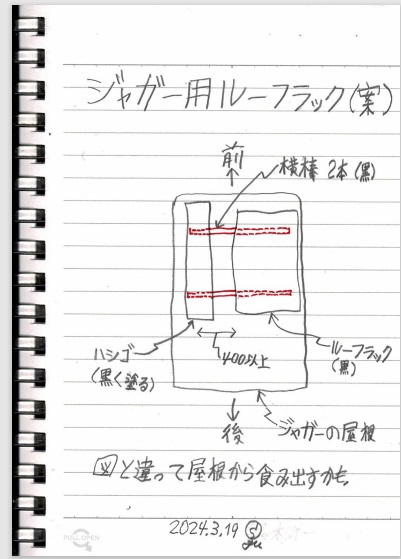 ジャガー用ルーフラック(案)
前
横棒 2本(黒)
ハシゴ
(黒く塗る)
400以上
ルーフラック
(黒)
後
ジャガーの屋根
図と違って屋根から食み出すかも
PULL OPEN
2024.3.19